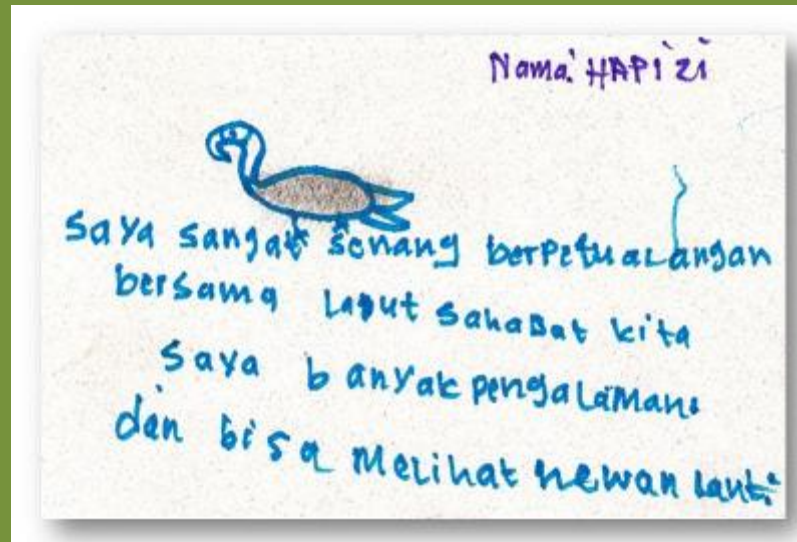 Nama: HAPIZI
saya sangat senang berpetualangan
bersama Laput sahaBat kita
saya banyak pengalaman.
dan bisa Melihat hewan Laut.